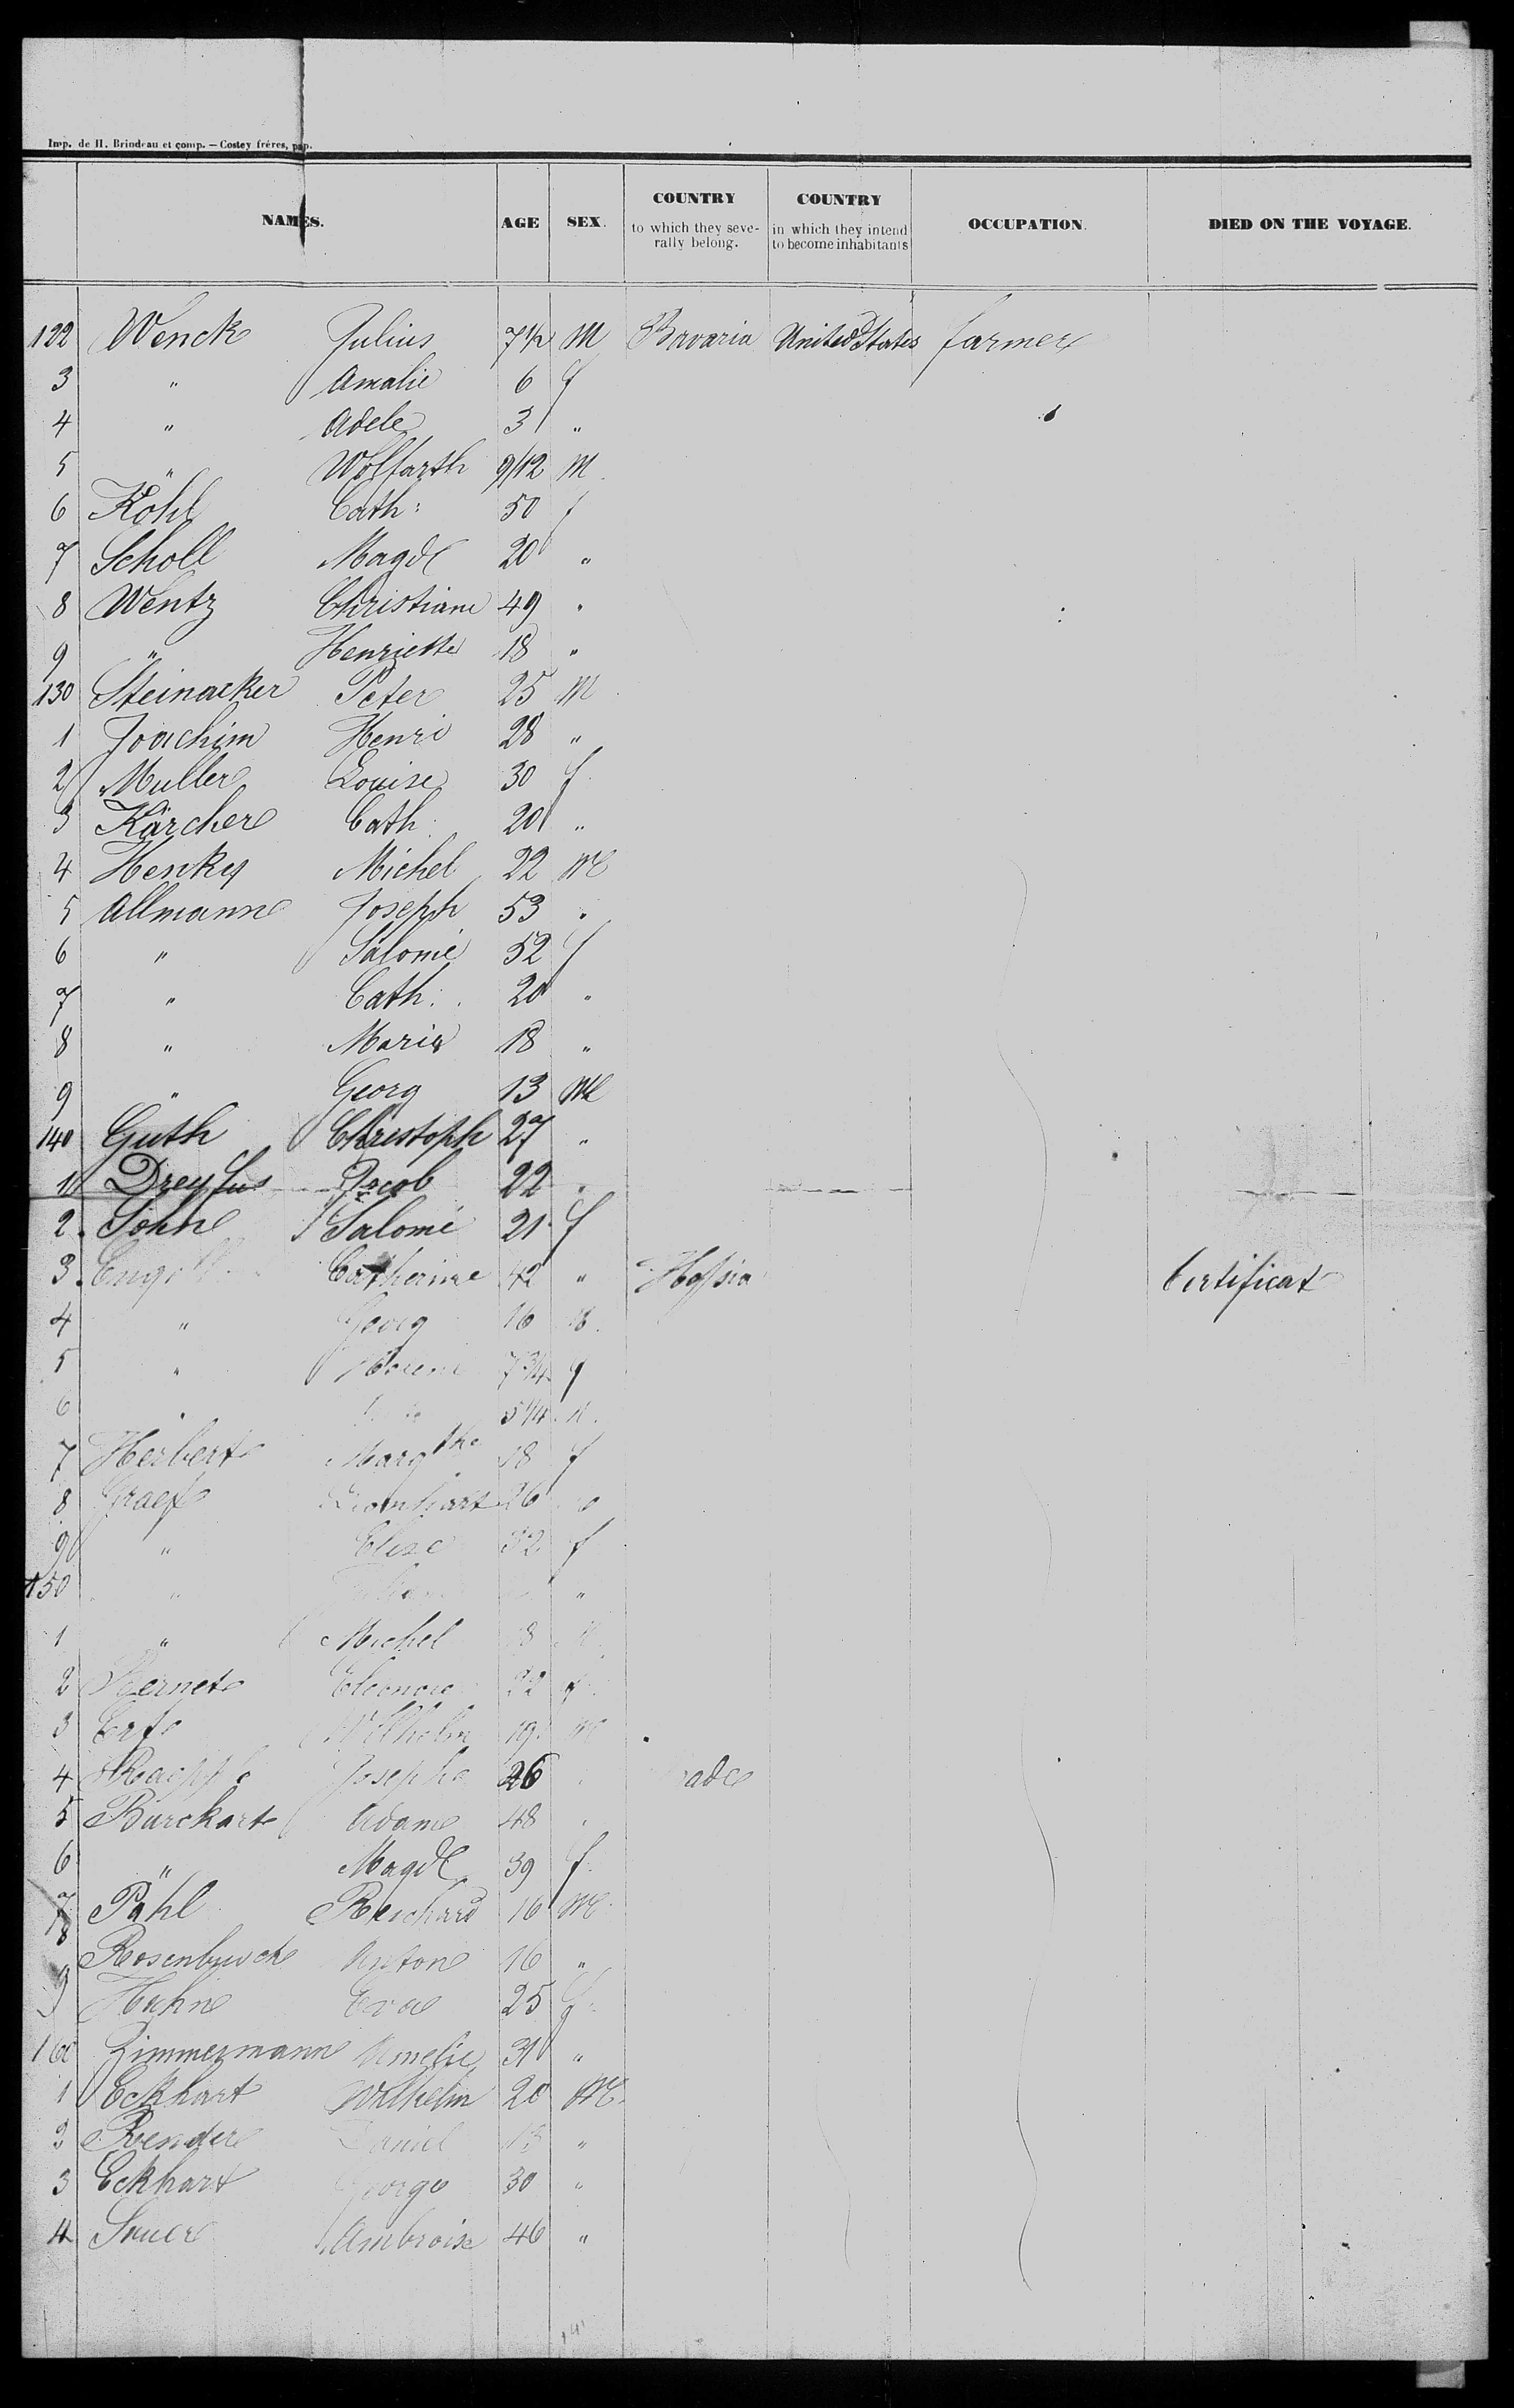 Imp. de H. Brindeau et comp. — Costey fréres, pap.
NAMES. AGE SEX. COUNTRY to which they severally belong. COUNTRY in which they intend to become inhabitants OCCUPATION. DIED ON THE VOYAGE.
122 Wenck Julius 7 1/2 M Bavaria United States farmer
3 " Amalie 6 f
4 " Adele 3 "
5 " Wolfarth 9/12 M
6 Köhl Cath: 50 f
7 Scholl Magd 20 "
8 Wentz Christiane 49 "
9 " Henriette 18 "
130 Steinacker Peter 25 M
1 Joachim Henri 28 "
2 Muller Louise 30 f
3 Kärcher Cath. 20 "
4 Henky Michel 22 M
5 Allmann Joseph 53 "
6 " Salomé 52 f
7 " Cath: 20 "
8 " Maria 18 "
9 " Georg 13 M
140 Guth Christoph 27 "
1 Dreyfus Jacob 22 "
2 Sohne Salomé 21 f
3 Catherine 42 " Hessia Certificat
4 " Georg 16 M
5 " 7 3/4 f
6 " 5 1/4 M.
7 Herbert Margthe 18 f
8 Graef 26
9 " Elise 32 f
150 " "
1 " Michel 8 M
2 Eleonore 22 f
3 Wilhelm 19 M
4 Joseph 26
5 Burckart Adam 48
6 " Magd 39 f.
7 Pöhl Reichard 16 M
8 Rosenbusch Anton 16 "
9 Huhn Eva 25 f
160 Zimmermann Amelie 31 "
1 Eckhart Wilhelm 20 M.
2 Daniel "
3 Eckhart George 30 "
4 Sauer Ambroise 46 "